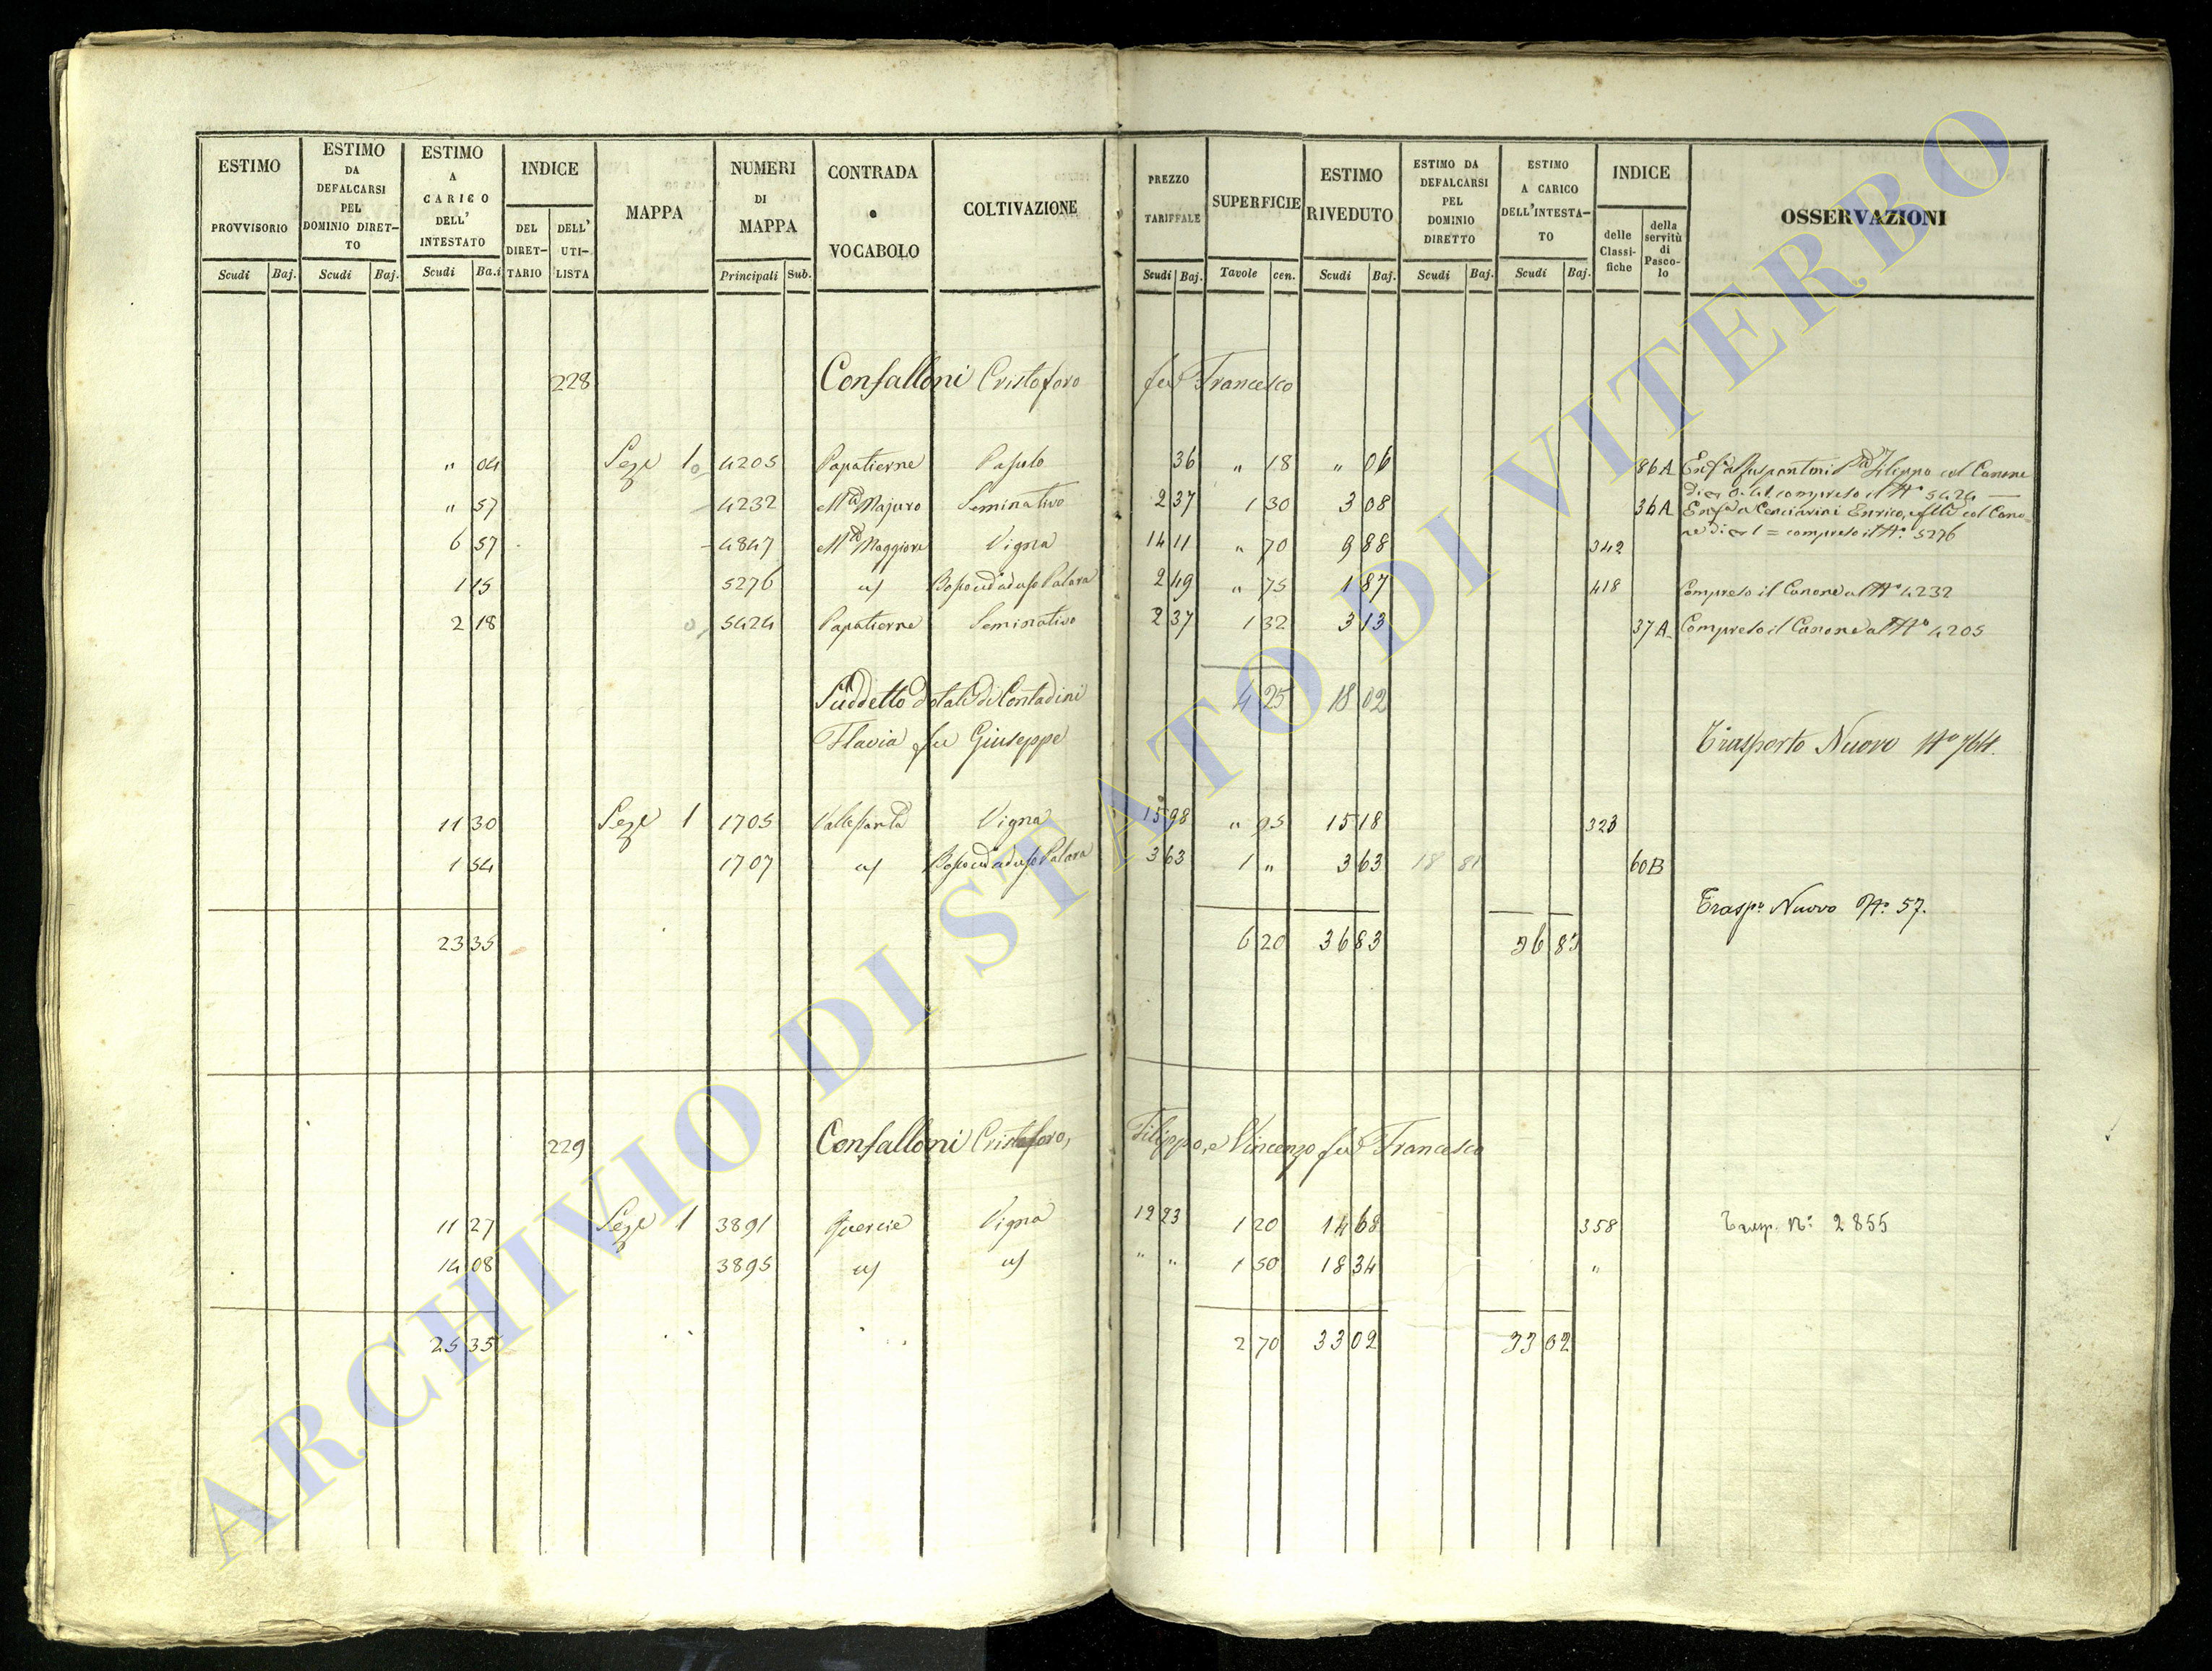 ESTIMO PROVVISORIO Scudi Baj.
ESTIMO DA DEFALCARSI PEL DOMINIO DIRET- TO Scudi Baj.
ESTIMO A CARICO DELL' INTESTATO Scudi Ba.i
INDICE DEL DIRET- TARIO DELL' UTI- LISTA
MAPPA
NUMERI DI MAPPA Principali Sub.
CONTRADA o VOCABOLO
COLTIVAZIONE
PREZZO TARIFFALE Scudi Baj.
SUPERFICIE Tavole cen.
ESTIMO RIVEDUTO Scudi Baj.
ESTIMO DA DEFALCARSI PEL DOMINIO DIRETTO Scudi Baj.
ESTIMO A CARICO DELL'INTESTA- TO Scudi Baj.
INDICE delle Classi- fiche della servitù di Pasco- lo
OSSERVAZIONI
228 Confalloni Cristoforo fu Francesco
" 04 Seze 1 4205 Papatierne Pascolo 36 " 18 " 06 86A Canone
compreso il N° 5424
" 57 4232 Mta Majuro Seminativo 2 37 1 30 3 08 36A Enrico, col Cano-
ne di compreso il N° 5276
6 57 4847 Mta Maggiore Vigna 14 11 " 70 9 88 342
1 15 5276 a/ Palara 2 49 " 75 1 87 418 Compreso il Canone al N° 4232
2 18 5424 Papatierne Seminativo 2 37 1 32 3 13 37A Compreso il Canone al N° 4205
Suddetto dotali di Contadini 4 25 18 02
Flavia fu Giuseppe Trasporto Nuovo N° 764.
11 30 Seze 1 1705 Valle Santa Vigna 15 98 " 95 15 18 323
1 54 1707 a/ Palara 3 63 1 " 3 63 18 81 60B
Traspo Nuovo N° 57.
23 35 6 20 36 83 36 83
229 Confalloni Cristoforo, Filippo, e Vincenzo fu Francesco
11 27 Seze 1 3891 Quercie Vigna 12 23 1 20 14 68 358 Trasp. N° 2855
14 08 3895 a/ a/ " " 1 50 18 34 "
25 35 2 70 33 02 33 02
ARCHIVIO DI STATO DI VITERBO